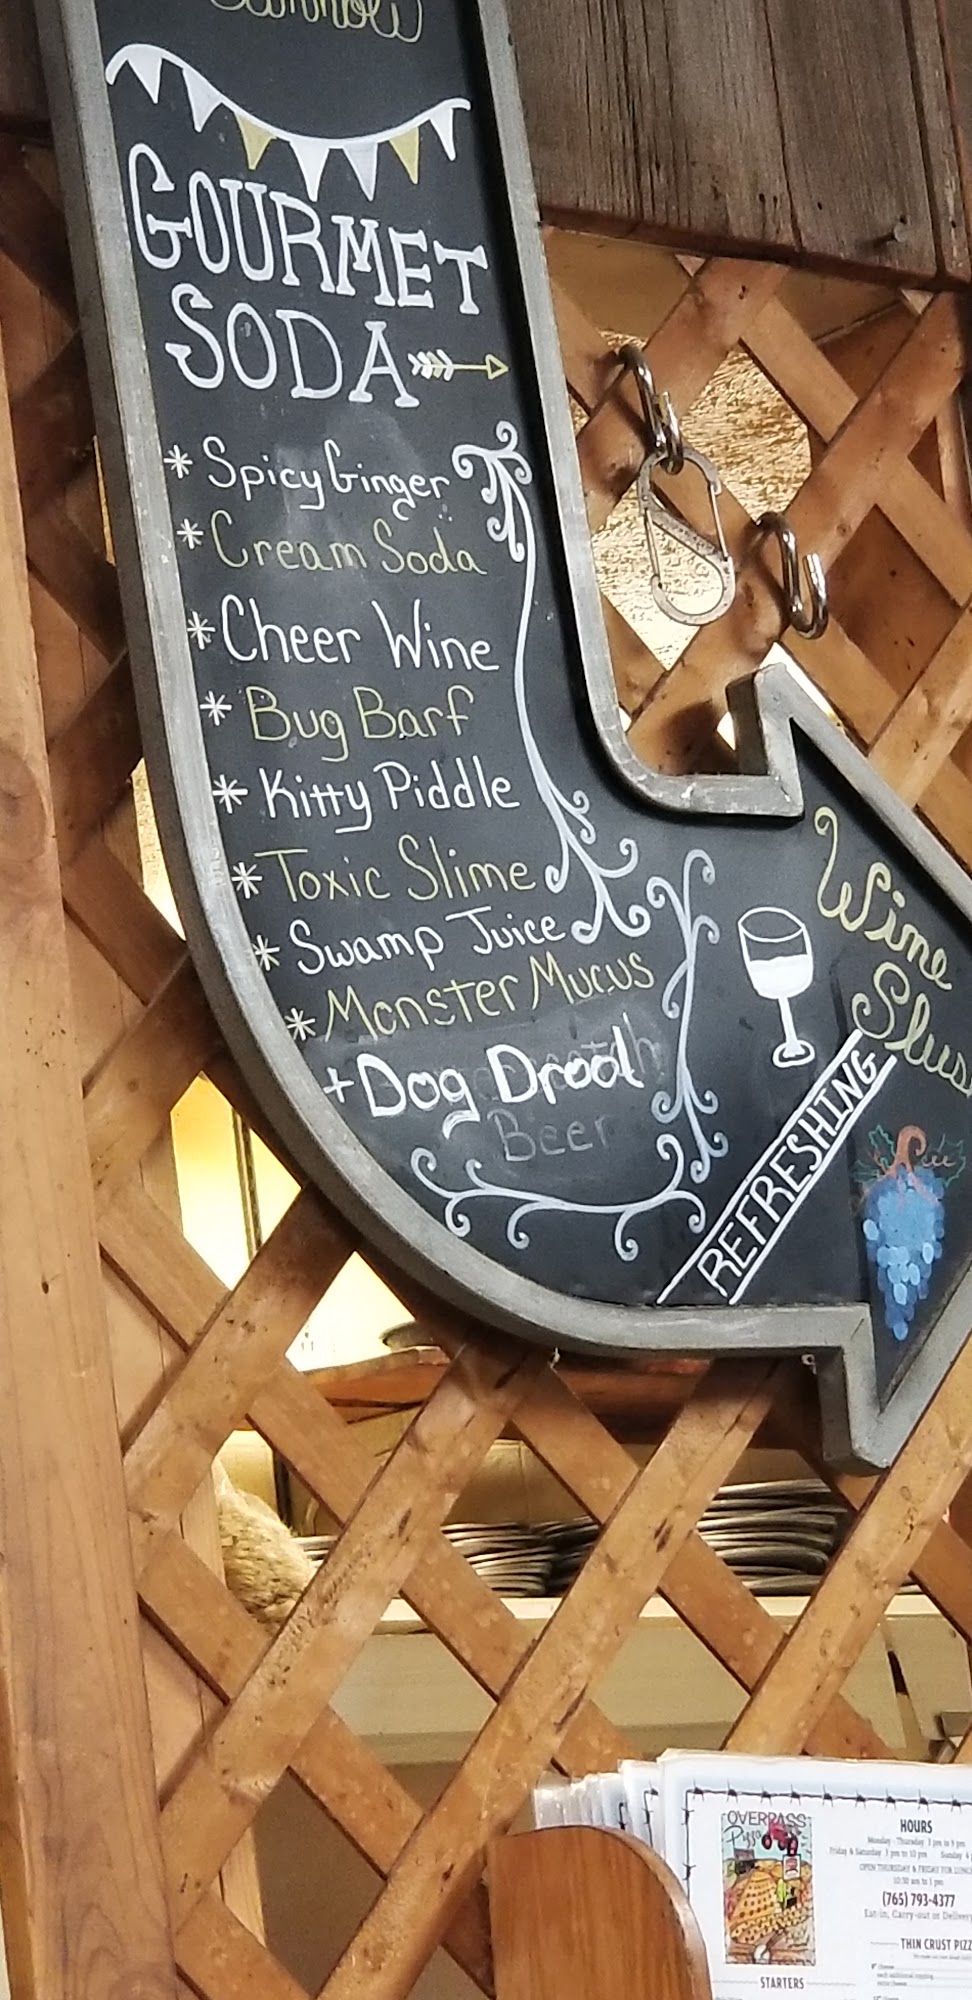 GOURMET
SODA
* Spicy Ginger
* Cream Soda
* Cheer Wine
* Bug Barf
* Kitty Piddle
* Toxic Slime
* Swamp Juice
* Monster Mucus
+ Dog Drool
Beer
Wine
REFRESHING
OVERPASS
Pizza
HOURS
Monday - Thursday 3 pm to 9 pm
Friday & Saturday 3 pm to 10 pm Sunday 4
OPEN THURSDAY & FRIDAY FOR
10:30 am to 1 pm
(765) 793-4377
Eat-in, Carry-out or Delivery
THIN CRUST
STARTERS